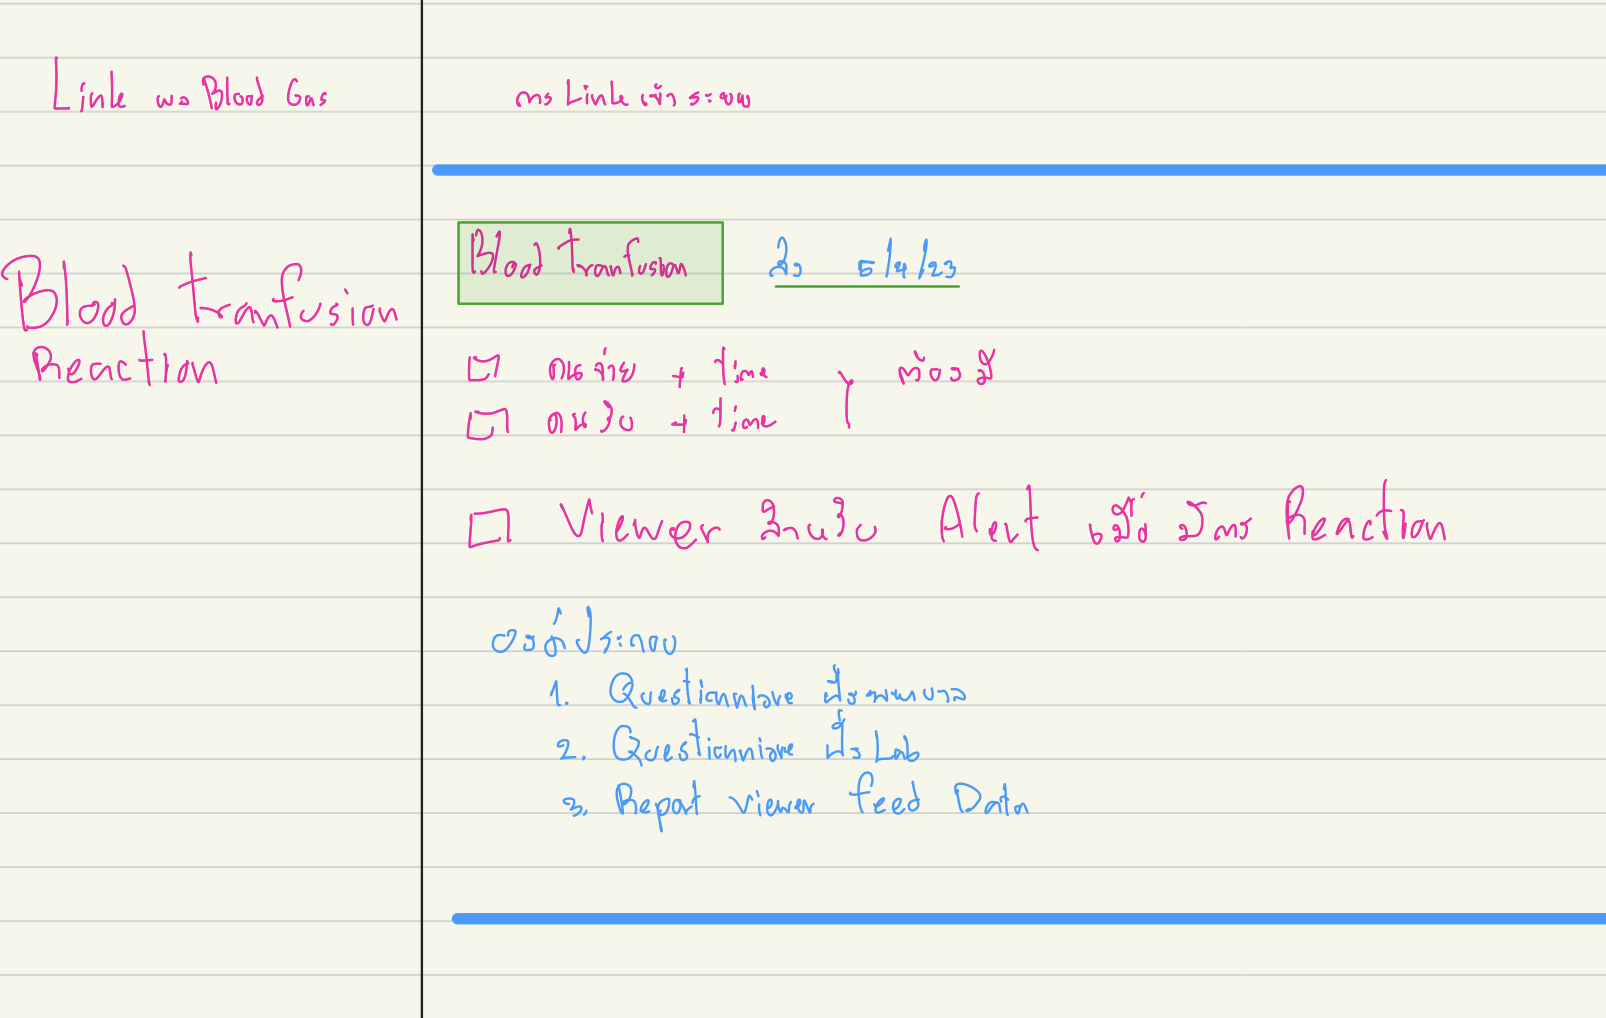 Link ผล Blood Gas
การ Link เข้า ระบบ
Blood tranfusion
Reaction
Blood tranfusion
ส่ง 5/4/23
คนจ่าย + time
คนรับ + time
ต้องมี
Viewer ส่วนรับ Alert เมื่อ มีการ Reaction
องค์ประกอบ
1. Questionniare ฝั่งพยาบาล
2. Questionniare ฝั่ง Lab
3. Report viewer feed Data